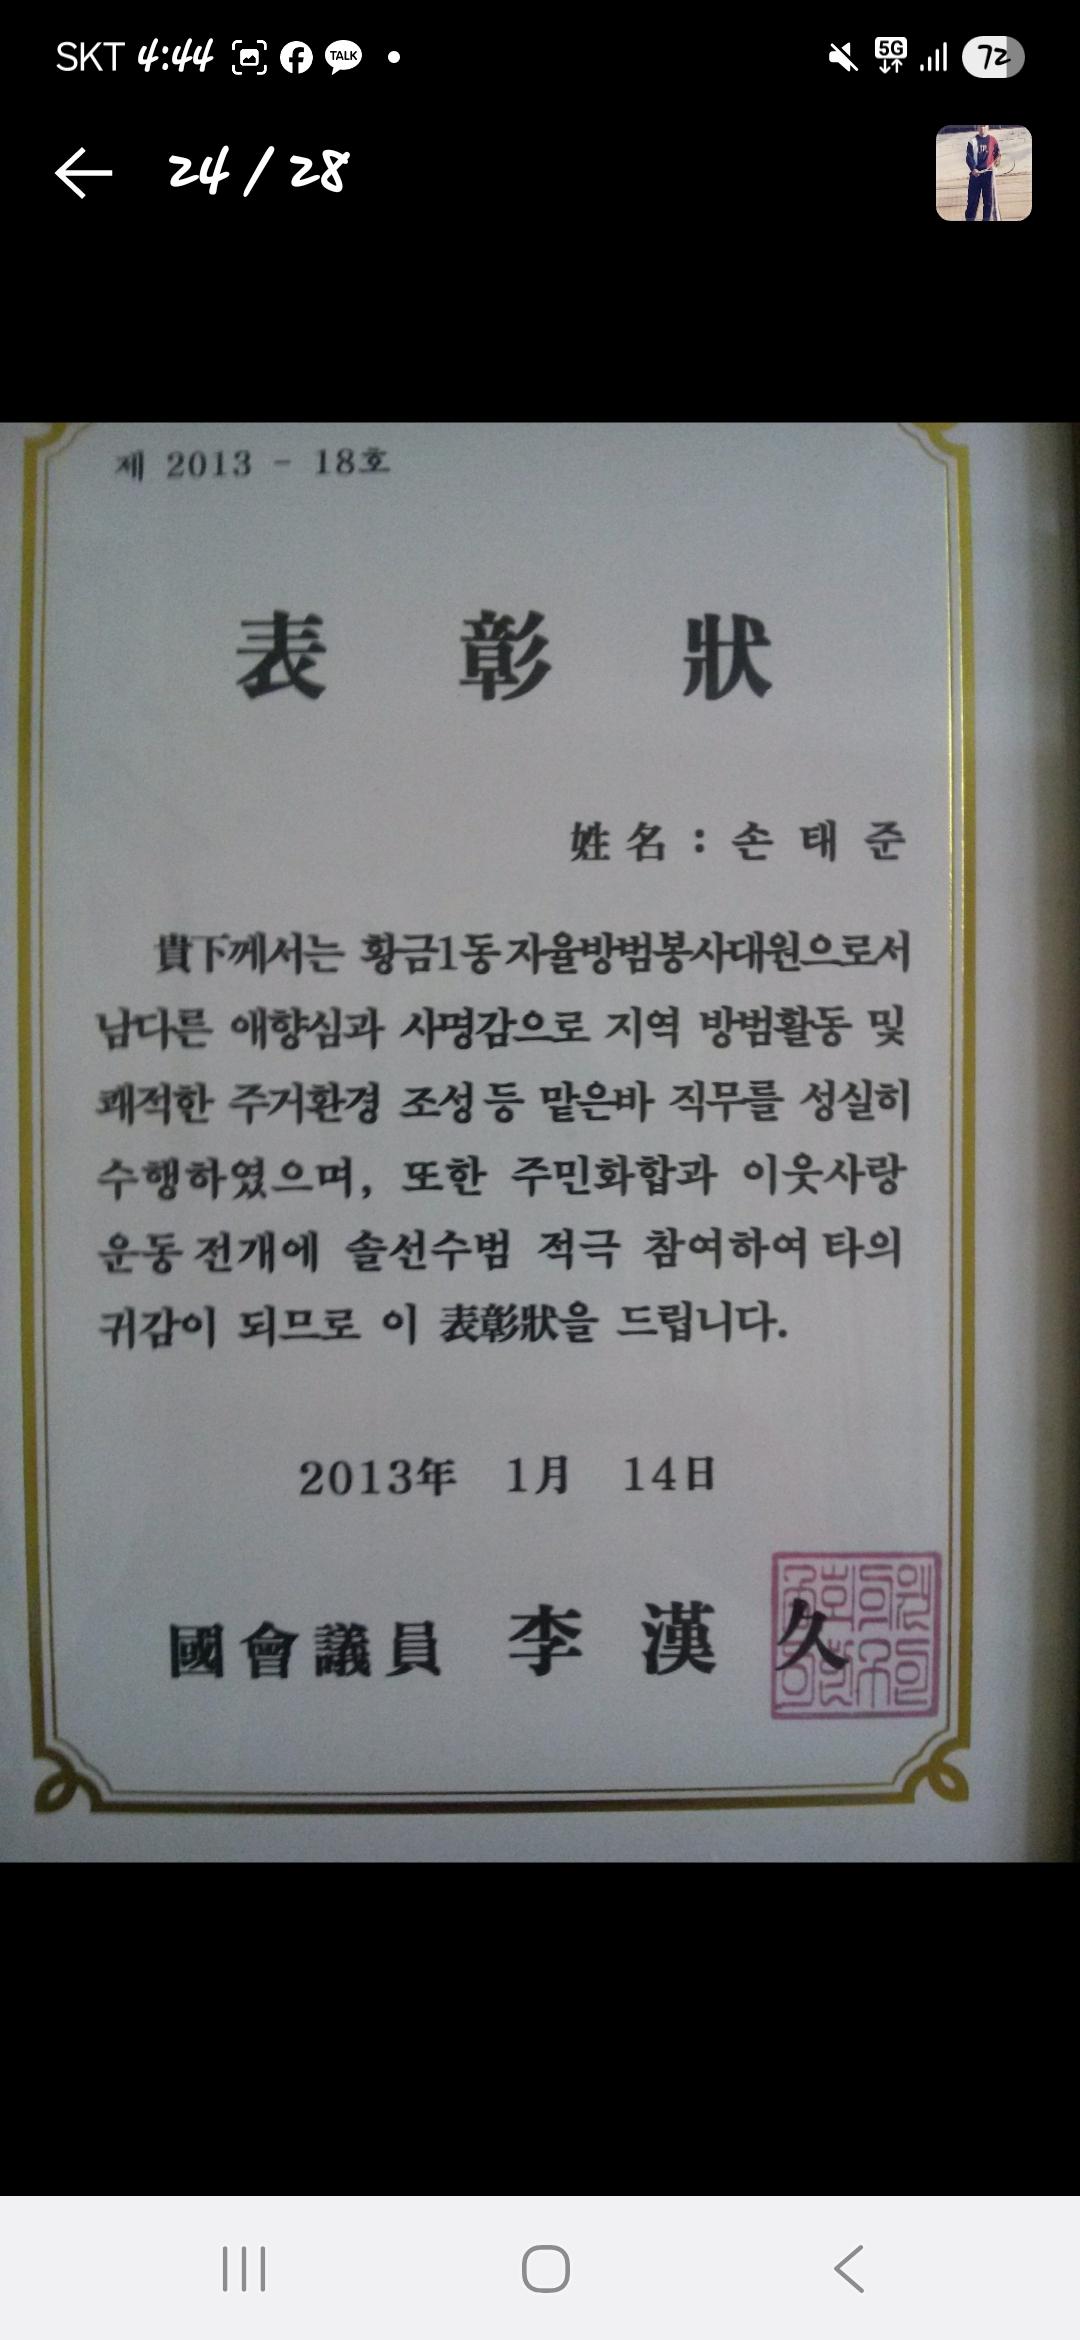 SKT 4:44 TALK 5G 72
24 / 28
제 2013 - 18호
表 彰 狀
姓 名 : 손 태 준
貴下께서는 황금1동 자율방범봉사대원으로서
남다른 애향심과 사명감으로 지역 방범활동 및
쾌적한 주거환경 조성 등 맡은바 직무를 성실히
수행하였으며, 또한 주민화합과 이웃사랑
운동 전개에 솔선수범 적극 참여하여 타의
귀감이 되므로 이 表彰狀을 드립니다.
2013年 1月 14日
國會議員 李 漢 久